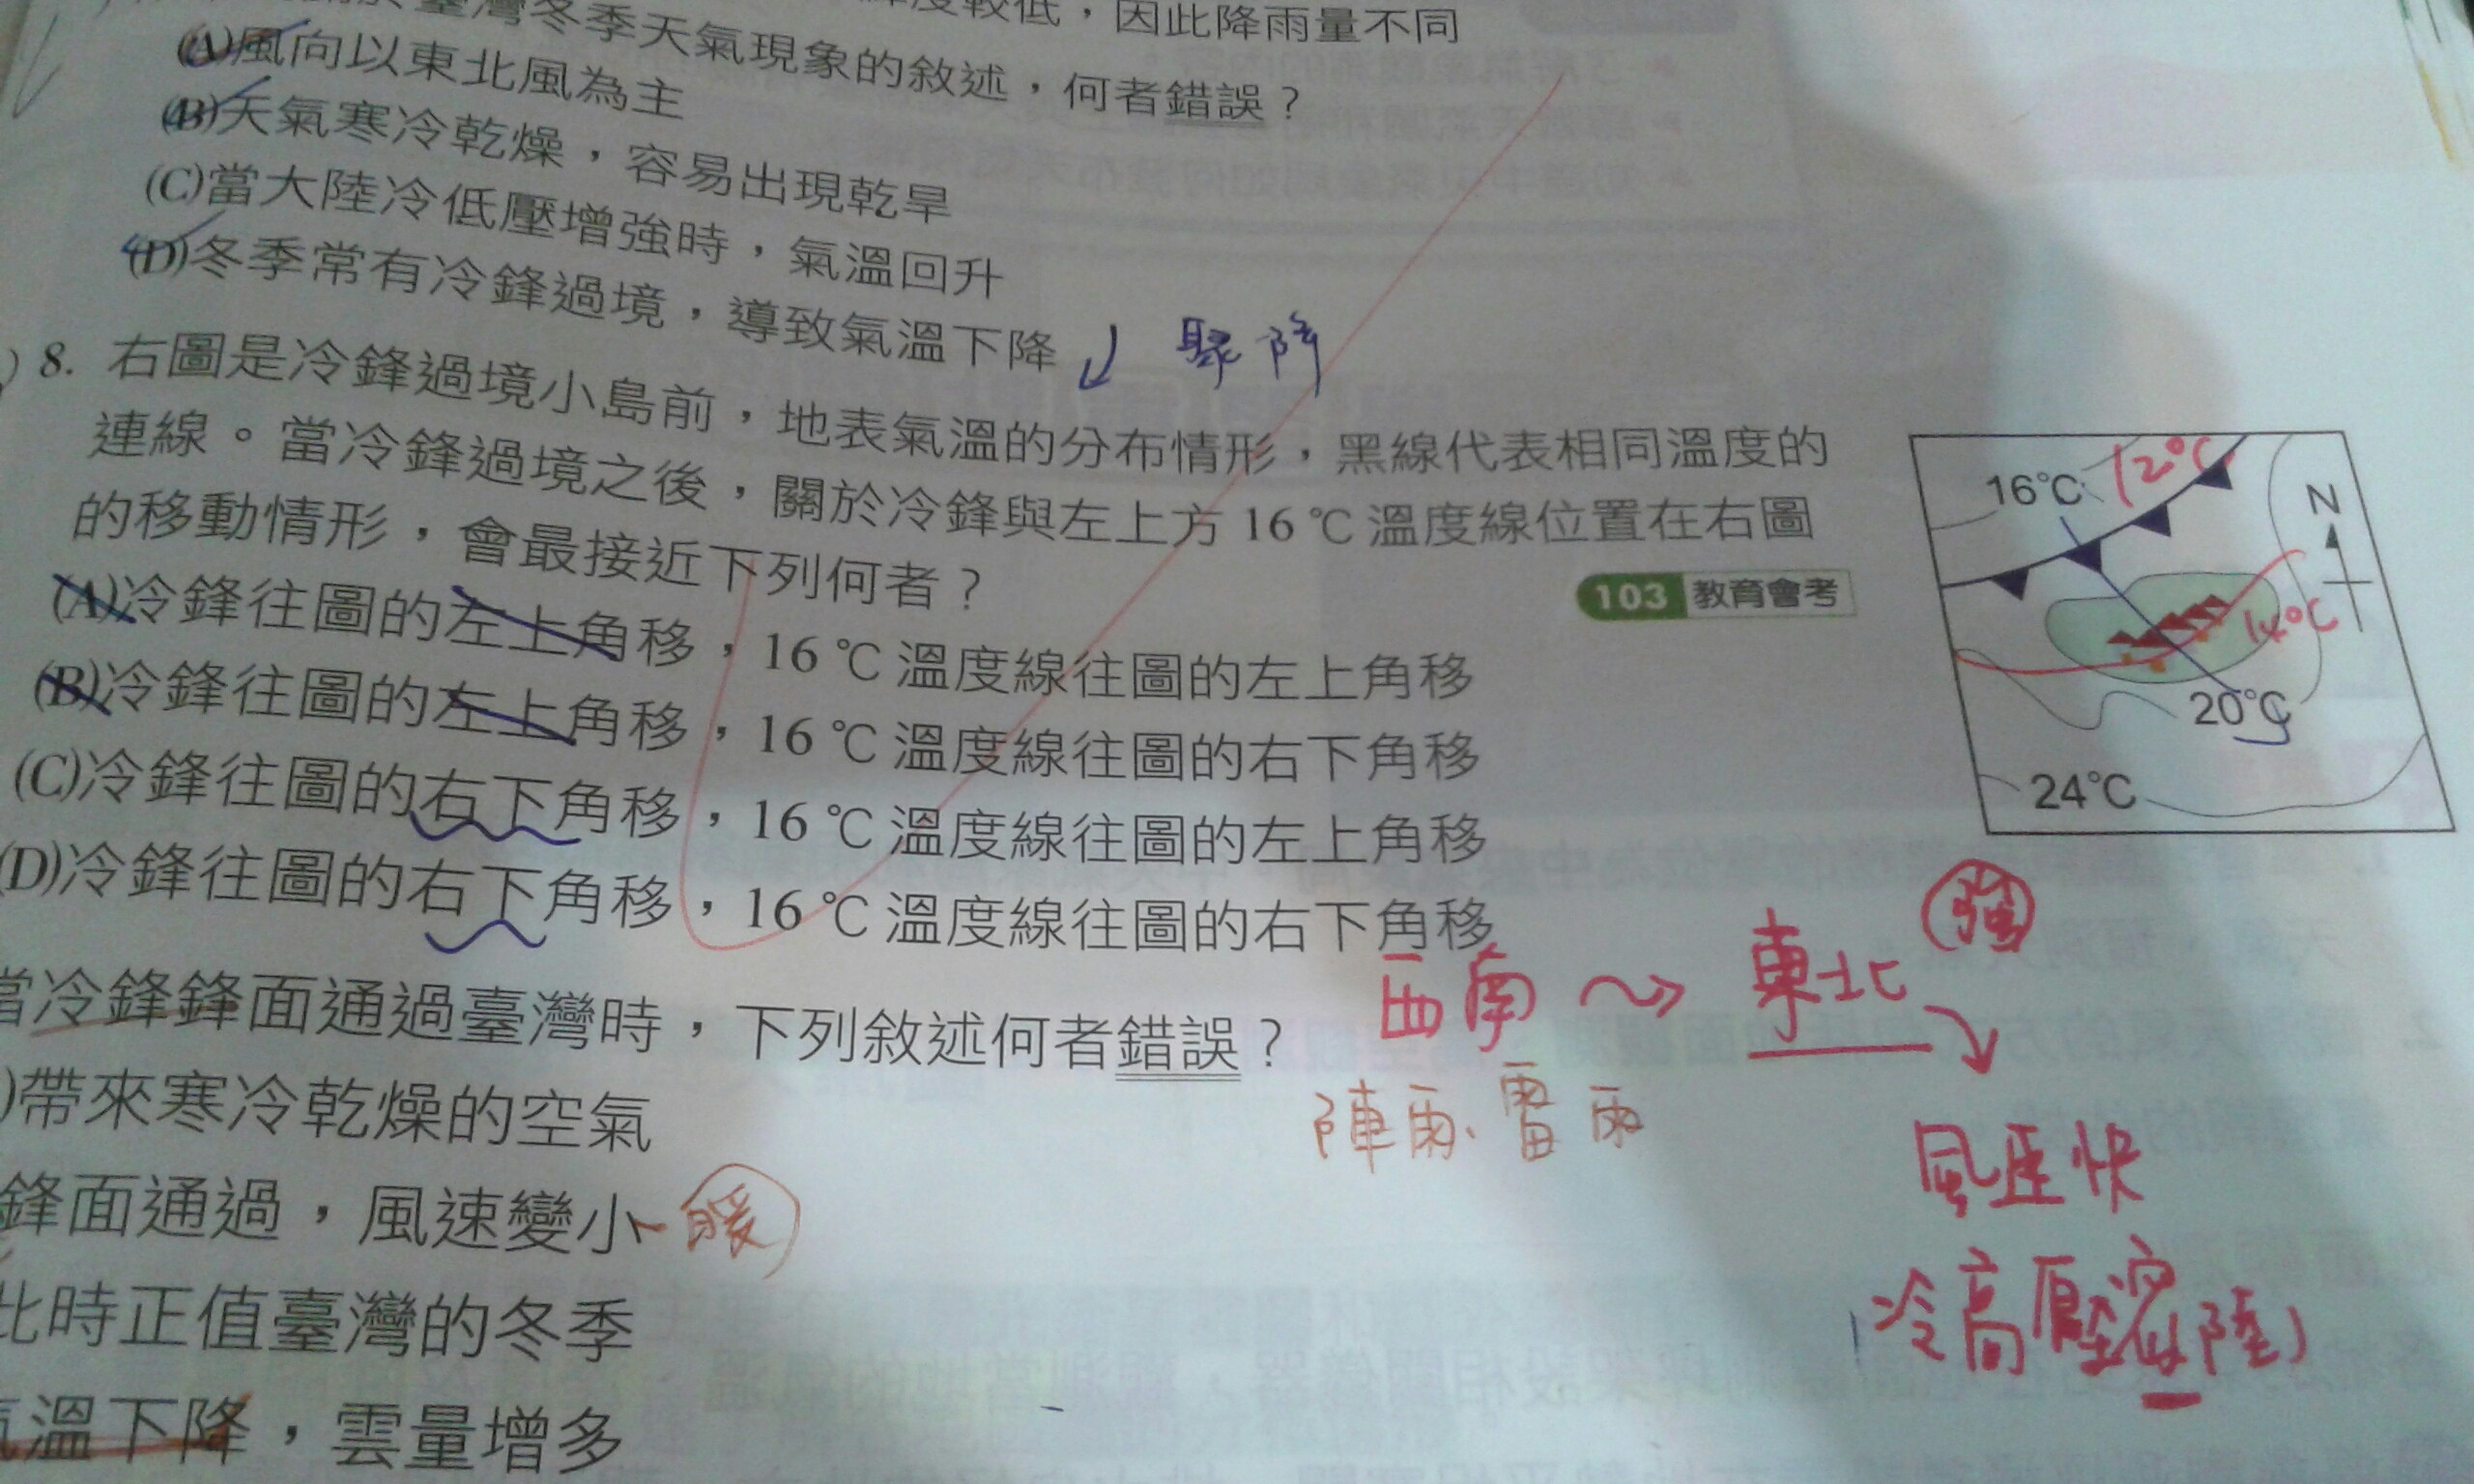 度較低，因此降雨量不同
臺灣冬季天氣現象的敘述，何者錯誤？
(A)風向以東北風為主
(B)天氣寒冷乾燥，容易出現乾旱
(C)當大陸冷低壓增強時，氣溫回升
(D)冬季常有冷鋒過境，導致氣溫下降
) 8. 右圖是冷鋒過境小島前，地表氣溫的分布情形，黑線代表相同溫度的
連線。當冷鋒過境之後，關於冷鋒與左上方16℃溫度線位置在右圖
的移動情形，會最接近下列何者？
103 教育會考
(A)冷鋒往圖的左上角移，16℃溫度線往圖的左上角移
(B)冷鋒往圖的左上角移，16℃溫度線往圖的右下角移
(C)冷鋒往圖的右下角移，16℃溫度線往圖的左上角移
(D)冷鋒往圖的右下角移，16℃溫度線往圖的右下角移
16℃
12℃
N
14℃
20℃
24℃
當冷鋒鋒面通過臺灣時，下列敘述何者錯誤？
)帶來寒冷乾燥的空氣
鋒面通過，風速變小
暖
此時正值臺灣的冬季
氣溫下降，雲量增多
西南
東北
強
陣雨、雷雨
風速快
冷高壓
陸)